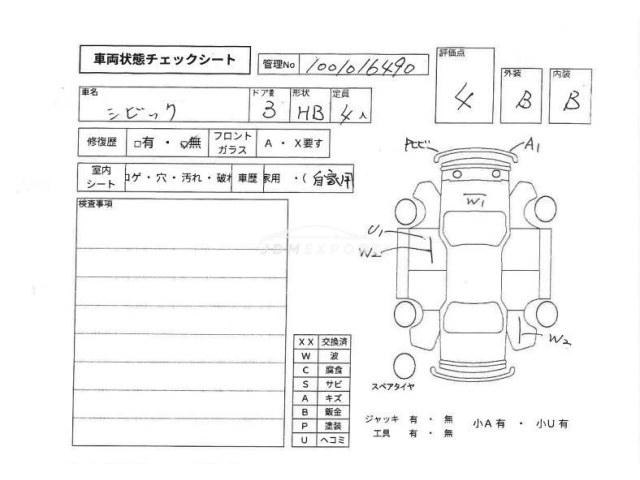 車両状態チェックシート
管理No 1001016490
評価点 4
外装 B
内装 B
車名 シビック
ドア数 3
形状 HB
定員 4人
修復歴 □有・☑無
フロントガラス A・X要す
室内シート コゲ・穴・汚れ・破れ
車歴 家用・( 自家用
検査事項
A1
W1
U1
W2
W2
JDMEXPORT
XX 交換済
W 波
C 腐食
S サビ
A キズ
B 鈑金
P 塗装
U ヘコミ
スペアタイヤ
ジャッキ 有・無
工具 有・無
小A有・小U有